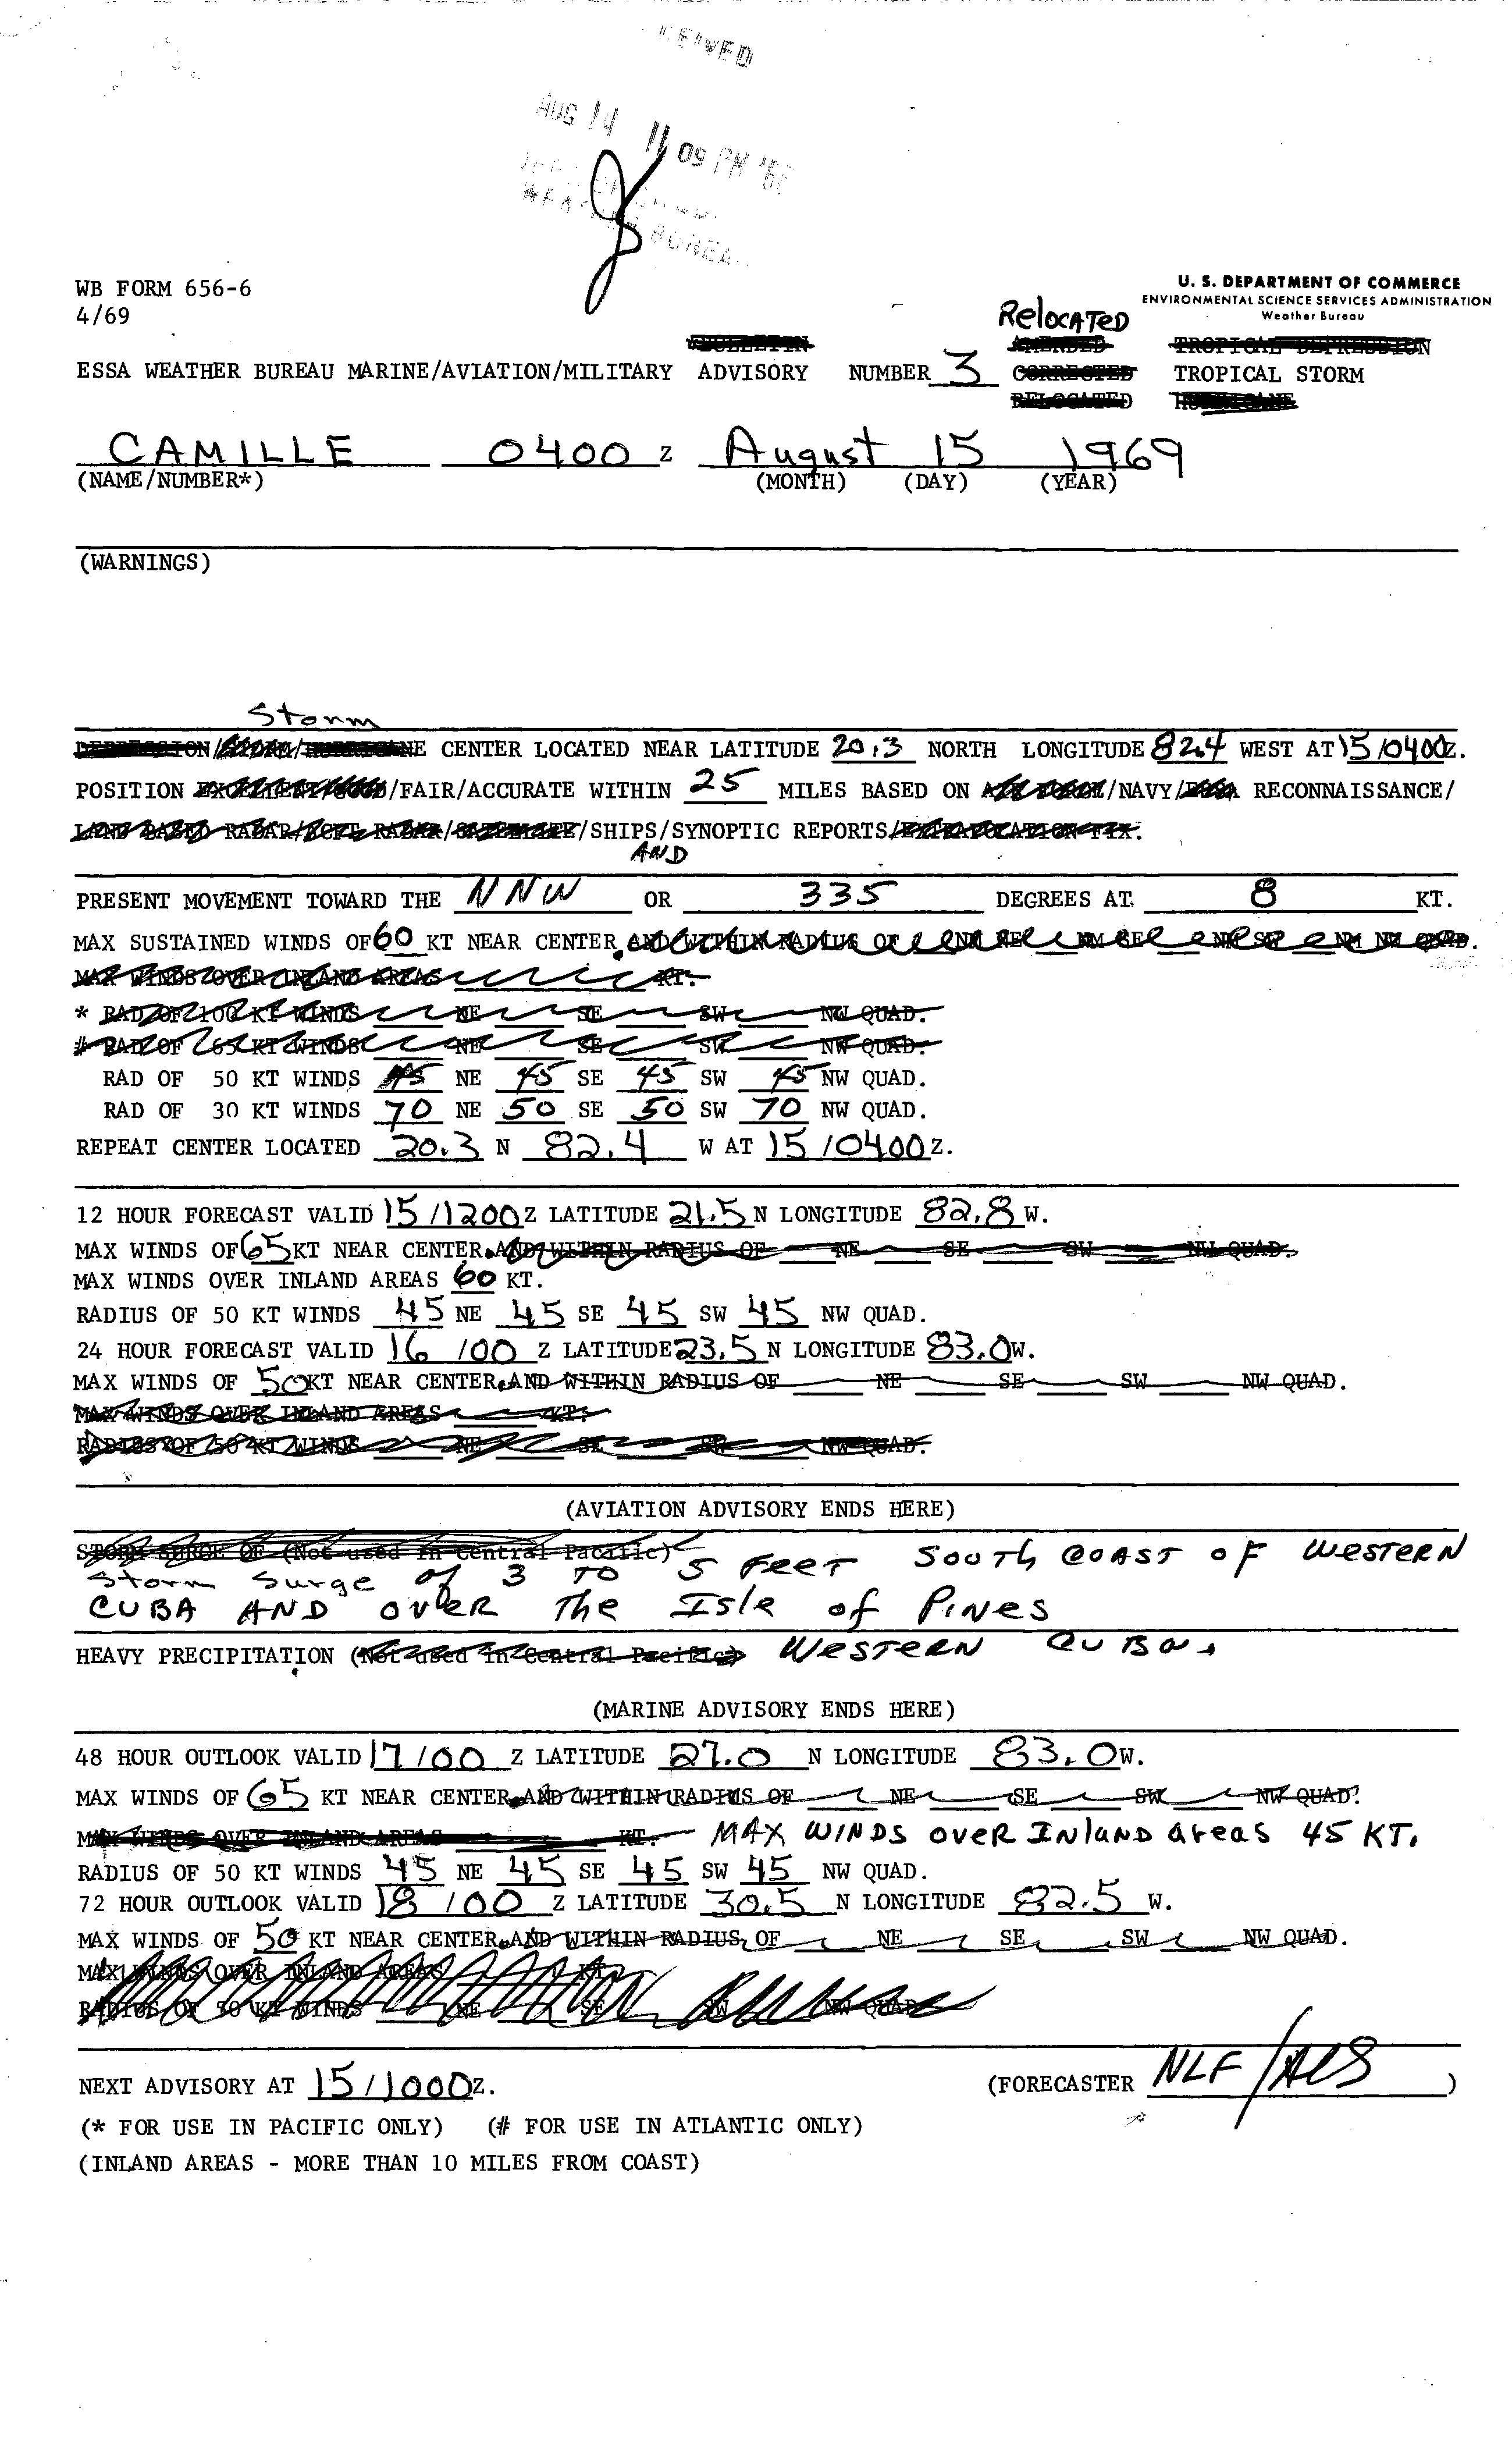 CEIVED
AUG 14 11 09 PM '6
WB FORM 656-6
4/69
U. S. DEPARTMENT OF COMMERCE
ENVIRONMENTAL SCIENCE SERVICES ADMINISTRATION
Weather Bureau
RelocATeD
BULLETIN AMENDED TROPICAL DEPRESSION
ESSA WEATHER BUREAU MARINE/AVIATION/MILITARY ADVISORY NUMBER 3 CORRECTED TROPICAL STORM
RELOCATED HURRICANE
CAMILLE 0400 Z August 15 1969
(NAME/NUMBER*) (MONTH) (DAY) (YEAR)
(WARNINGS)
Storm
DEPRESSION/STORM/HURRICANE CENTER LOCATED NEAR LATITUDE 20.3 NORTH LONGITUDE 82.4 WEST AT 15/0400Z.
POSITION EXCELLENT/GOOD/FAIR/ACCURATE WITHIN 25 MILES BASED ON AIR FORCE/NAVY/ESSA RECONNAISSANCE/
LAND BASED RADAR/ACFT RADAR/SATELLITE/SHIPS/SYNOPTIC REPORTS/EXTRAPOLATION FIX.
AND
PRESENT MOVEMENT TOWARD THE NNW OR 335 DEGREES AT 8 KT.
MAX SUSTAINED WINDS OF 60 KT NEAR CENTER. AND WITHIN RADIUS OF NM NE NM SE NM SW NM NW QUAD.
MAX WINDS OVER INLAND AREAS KT.
* RAD OF 100 KT WINDS NE SE SW NW QUAD.
# RAD OF 65 KT WINDS NE SE SW NW QUAD.
RAD OF 50 KT WINDS 45 NE 45 SE 45 SW 45 NW QUAD.
RAD OF 30 KT WINDS 70 NE 50 SE 50 SW 70 NW QUAD.
REPEAT CENTER LOCATED 20.3 N 82.4 W AT 15/0400Z.
12 HOUR FORECAST VALID 15/1200Z LATITUDE 21.5 N LONGITUDE 82.8 W.
MAX WINDS OF 65 KT NEAR CENTER. AND WITHIN RADIUS OF NE SE SW NW QUAD.
MAX WINDS OVER INLAND AREAS 60 KT.
RADIUS OF 50 KT WINDS 45 NE 45 SE 45 SW 45 NW QUAD.
24 HOUR FORECAST VALID 16 /00 Z LATITUDE 23.5 N LONGITUDE 83.0 W.
MAX WINDS OF 50 KT NEAR CENTER. AND WITHIN RADIUS OF NE SE SW NW QUAD.
MAX WINDS OVER INLAND AREAS KT.
RADIUS OF 50 KT WINDS NE SE SW NW QUAD.
(AVIATION ADVISORY ENDS HERE)
STORM SURGE OF (Not used in Central Pacific)
Storm Surge of 3 TO 5 FeeT SOUTh COAST OF WeSTeRN
CUBA AND over The Isle of PiNes
HEAVY PRECIPITATION (Not used in Central Pacific) WeSTeRN CUBa.
(MARINE ADVISORY ENDS HERE)
48 HOUR OUTLOOK VALID 17/00 Z LATITUDE 27.0 N LONGITUDE 83.0 W.
MAX WINDS OF 65 KT NEAR CENTER. AND WITHIN RADIUS OF NE SE SW NW QUAD.
MAX WINDS OVER INLAND AREAS KT. MAX WINDS oveR INlaND areas 45 KT.
RADIUS OF 50 KT WINDS 45 NE 45 SE 45 SW 45 NW QUAD.
72 HOUR OUTLOOK VALID 18 /00 Z LATITUDE 30.5 N LONGITUDE 82.5 W.
MAX WINDS OF 50 KT NEAR CENTER. AND WITHIN RADIUS OF NE SE SW NW QUAD.
MAX WINDS OVER INLAND AREAS KT
RADIUS OF 50 KT WINDS NE SE SW NW QUAD
NEXT ADVISORY AT 15/1000Z. (FORECASTER NLF/ )
(* FOR USE IN PACIFIC ONLY) (# FOR USE IN ATLANTIC ONLY)
(INLAND AREAS - MORE THAN 10 MILES FROM COAST)